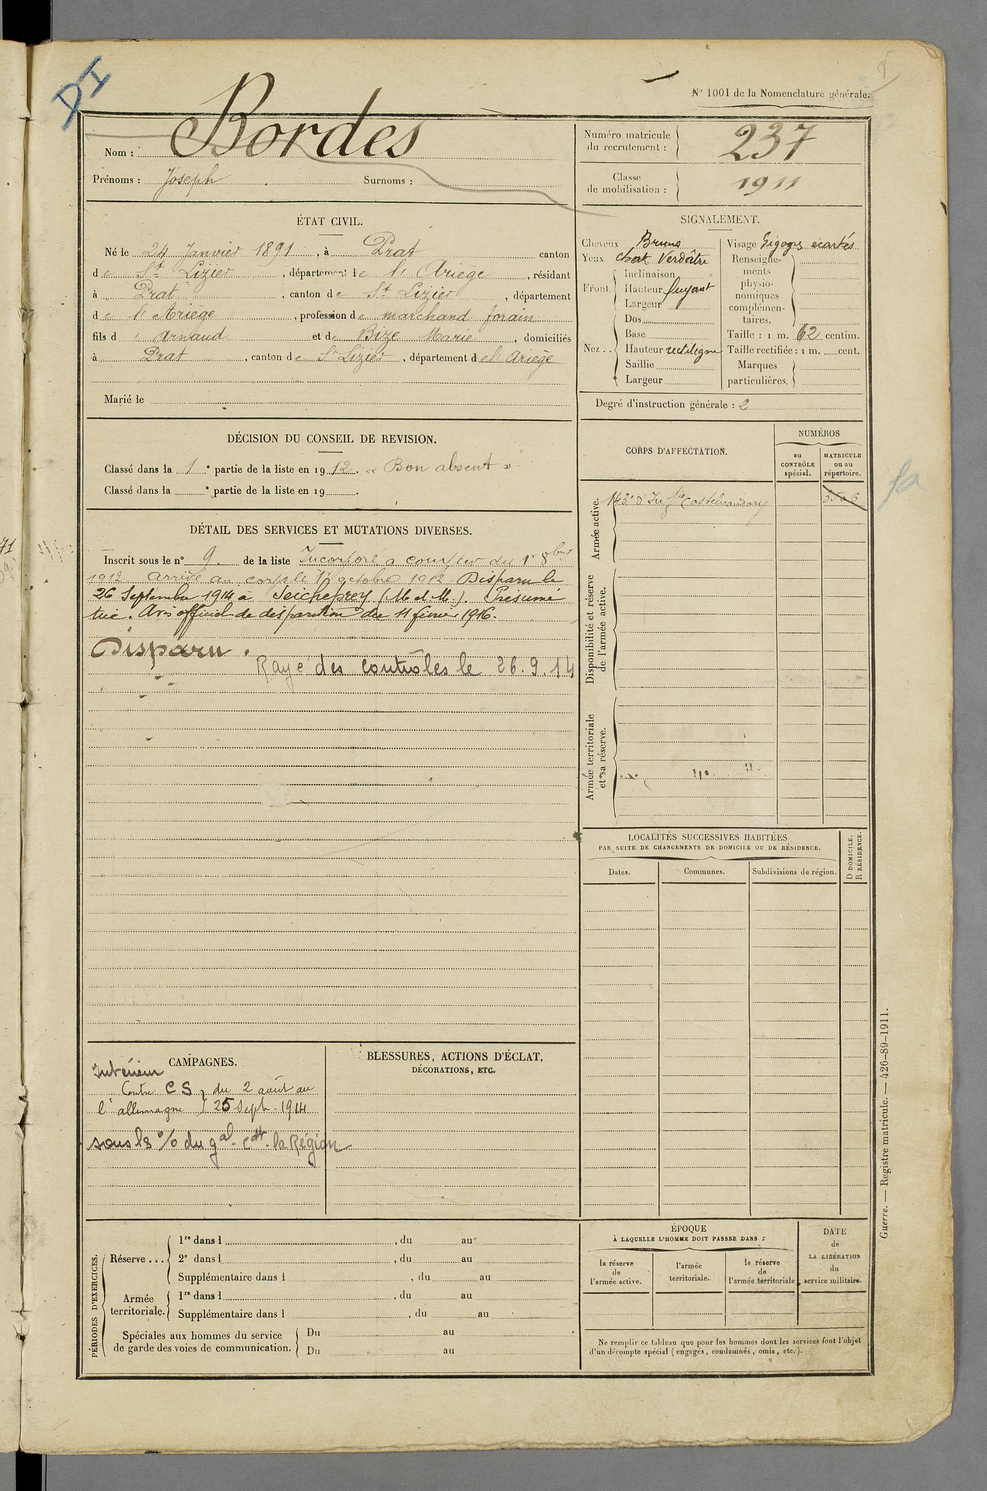 DI
N° 1001 de la Nomenclature générale.
Nom : Bordes
Prénoms : Joseph Surnoms :
Numéro matricule du recrutement : 237
Classe de mobilisation : 1911
ÉTAT CIVIL.
Né le 24 Janvier 1891, à Prat canton
de St Lizier, département de l'Ariège, résidant
à Prat, canton de St Lizier, département
de l'Ariège, profession de marchand forain
fils d' Arnaud et de Bize Marie, domiciliés
à Prat, canton de St Lizier, département de l'Ariège
Marié le
SIGNALEMENT.
Cheveux Bruns
Yeux Verdâtre
Front. Inclinaison
Hauteur fuyant
Largeur
Nez.. Dos
Base
Hauteur rectiligne
Saillie
Largeur
Visage Zigoms écartés
Renseignements physionomiques complémentaires.
Taille : 1 m. 62 centim.
Taille rectifiée : 1 m. cent.
Marques particulières.
Degré d'instruction générale : 2
DÉCISION DU CONSEIL DE REVISION.
Classé dans la 1e partie de la liste en 1912. « Bon absent »
Classé dans la e partie de la liste en 19 .
DÉTAIL DES SERVICES ET MUTATIONS DIVERSES.
Inscrit sous le n° 9 de la liste Incorporé à compter du 1er 8bre
1912 Arrivé au corps le octobre 1912. Disparu le
26 Septembre 1914 à Seicheprey (M. et M.). Présumé
tué. Avis officiel de disparition du 11 février 1916.
Disparu.
Rayé des contrôles le 26.9.14
CORPS D'AFFECTATION.
NUMÉROS
au CONTRÔLE spécial.
MATRICULE ou au répertoire.
Armée active.
143e d'Inf Castelnaudary
Disponibilité et réserve de l'armée active.
Armée territoriale et sa réserve.
LOCALITÉS SUCCESSIVES HABITÉES
PAR SUITE DE CHANGEMENTS DE DOMICILE OU DE RÉSIDENCE.
Dates.
Communes.
Subdivisions de région.
D DOMICILE, R RÉSIDENCE.
CAMPAGNES.
Intérieur
Contre CS du 2 août au
l'allemagne 25 Sept. 1914
sous ls % du gal. Cdt. la Région
BLESSURES, ACTIONS D'ÉCLAT,
DÉCORATIONS, ETC.
PÉRIODES D'EXERCICES.
Réserve ... 1re dans l , du au
2e dans l , du au
Supplémentaire dans l , du au
Armée territoriale. 1re dans l , du au
Supplémentaire dans l , du au
Spéciales aux hommes du service de garde des voies de communication. Du au
Du au
ÉPOQUE
À LAQUELLE L'HOMME DOIT PASSER DANS :
la réserve de l'armée active.
l'armée territoriale.
la réserve de l'armée territoriale
DATE de LA LIBÉRATION du service militaire.
Ne remplir ce tableau que pour les hommes dont les services font l'objet
d'un décompte spécial (engagés, condamnés, omis, etc.).
Guerre. — Registre matricule. — 426-89-1911.